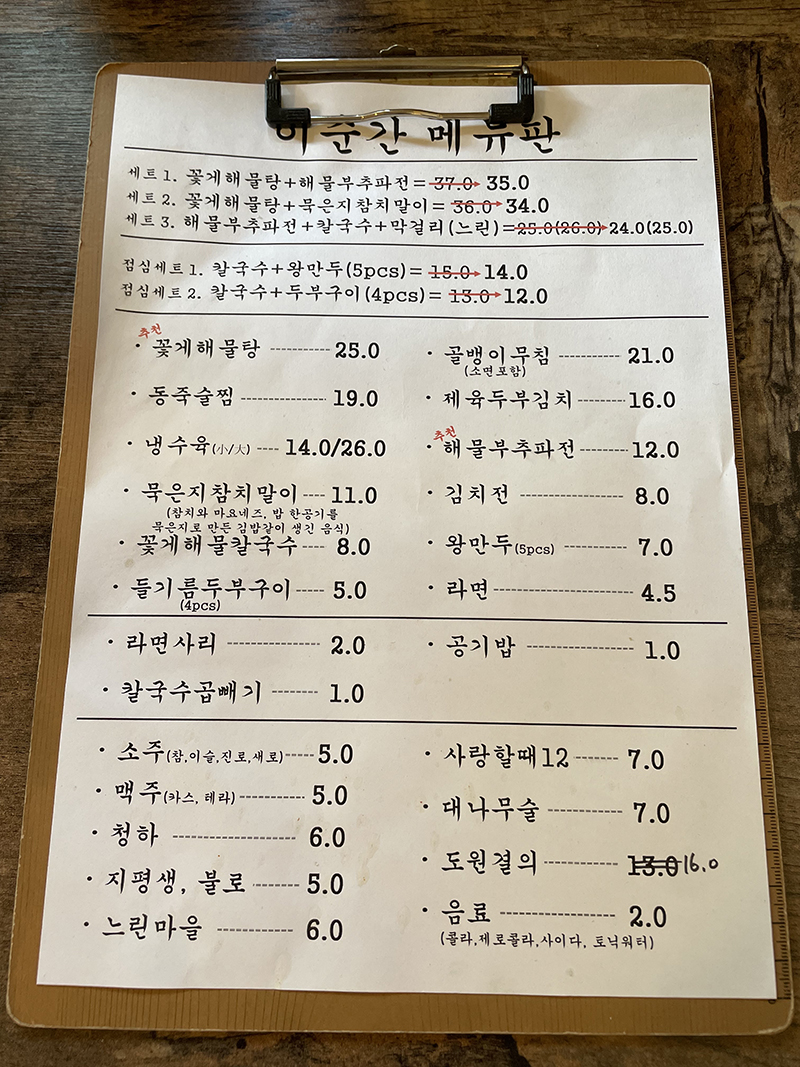 이순간 메뉴판
세트 1. 꽃게해물탕+해물부추파전= 37.0 35.0
세트 2. 꽃게해물탕+묵은지참치말이= 36.0 34.0
세트 3. 해물부추파전+칼국수+막걸리(느린)=25.0(26.0) 24.0(25.0)
점심세트 1. 칼국수+왕만두(5pcs)= 15.0 14.0
점심세트 2. 칼국수+두부구이(4pcs)= 13.0 12.0
추천
· 꽃게해물탕 ---------- 25.0
· 동죽술찜 -------------- 19.0
· 냉수육(小/大) ---- 14.0/26.0
· 묵은지참치말이 ---- 11.0
(참치와 마요네즈, 밥 한공기를
묵은지로 만든 김밥같이 생긴 음식)
· 꽃게해물칼국수 ---- 8.0
· 들기름두부구이 ----- 5.0
(4pcs)
· 골뱅이무침 ---------- 21.0
(소면포함)
· 제육두부김치 -------- 16.0
추천
· 해물부추파전 -------- 12.0
· 김치전 ---------------- 8.0
· 왕만두(5pcs) ---------- 7.0
· 라면 ---------------------- 4.5
· 라면사리 -------------- 2.0
· 칼국수곱빼기 -------- 1.0
· 공기밥 ---------------- 1.0
· 소주(참,이슬,진로,새로) ----- 5.0
· 맥주(카스, 테라) ----------- 5.0
· 청하 ------------------- 6.0
· 지평생, 불로 -------- 5.0
· 느린마을 ------------ 6.0
· 사랑할때12 ------- 7.0
· 대나무술 ------------ 7.0
· 도원결의 ------------ 13.0 16.0
· 음료 ------------------ 2.0
(콜라,제로콜라,사이다, 토닉워터)